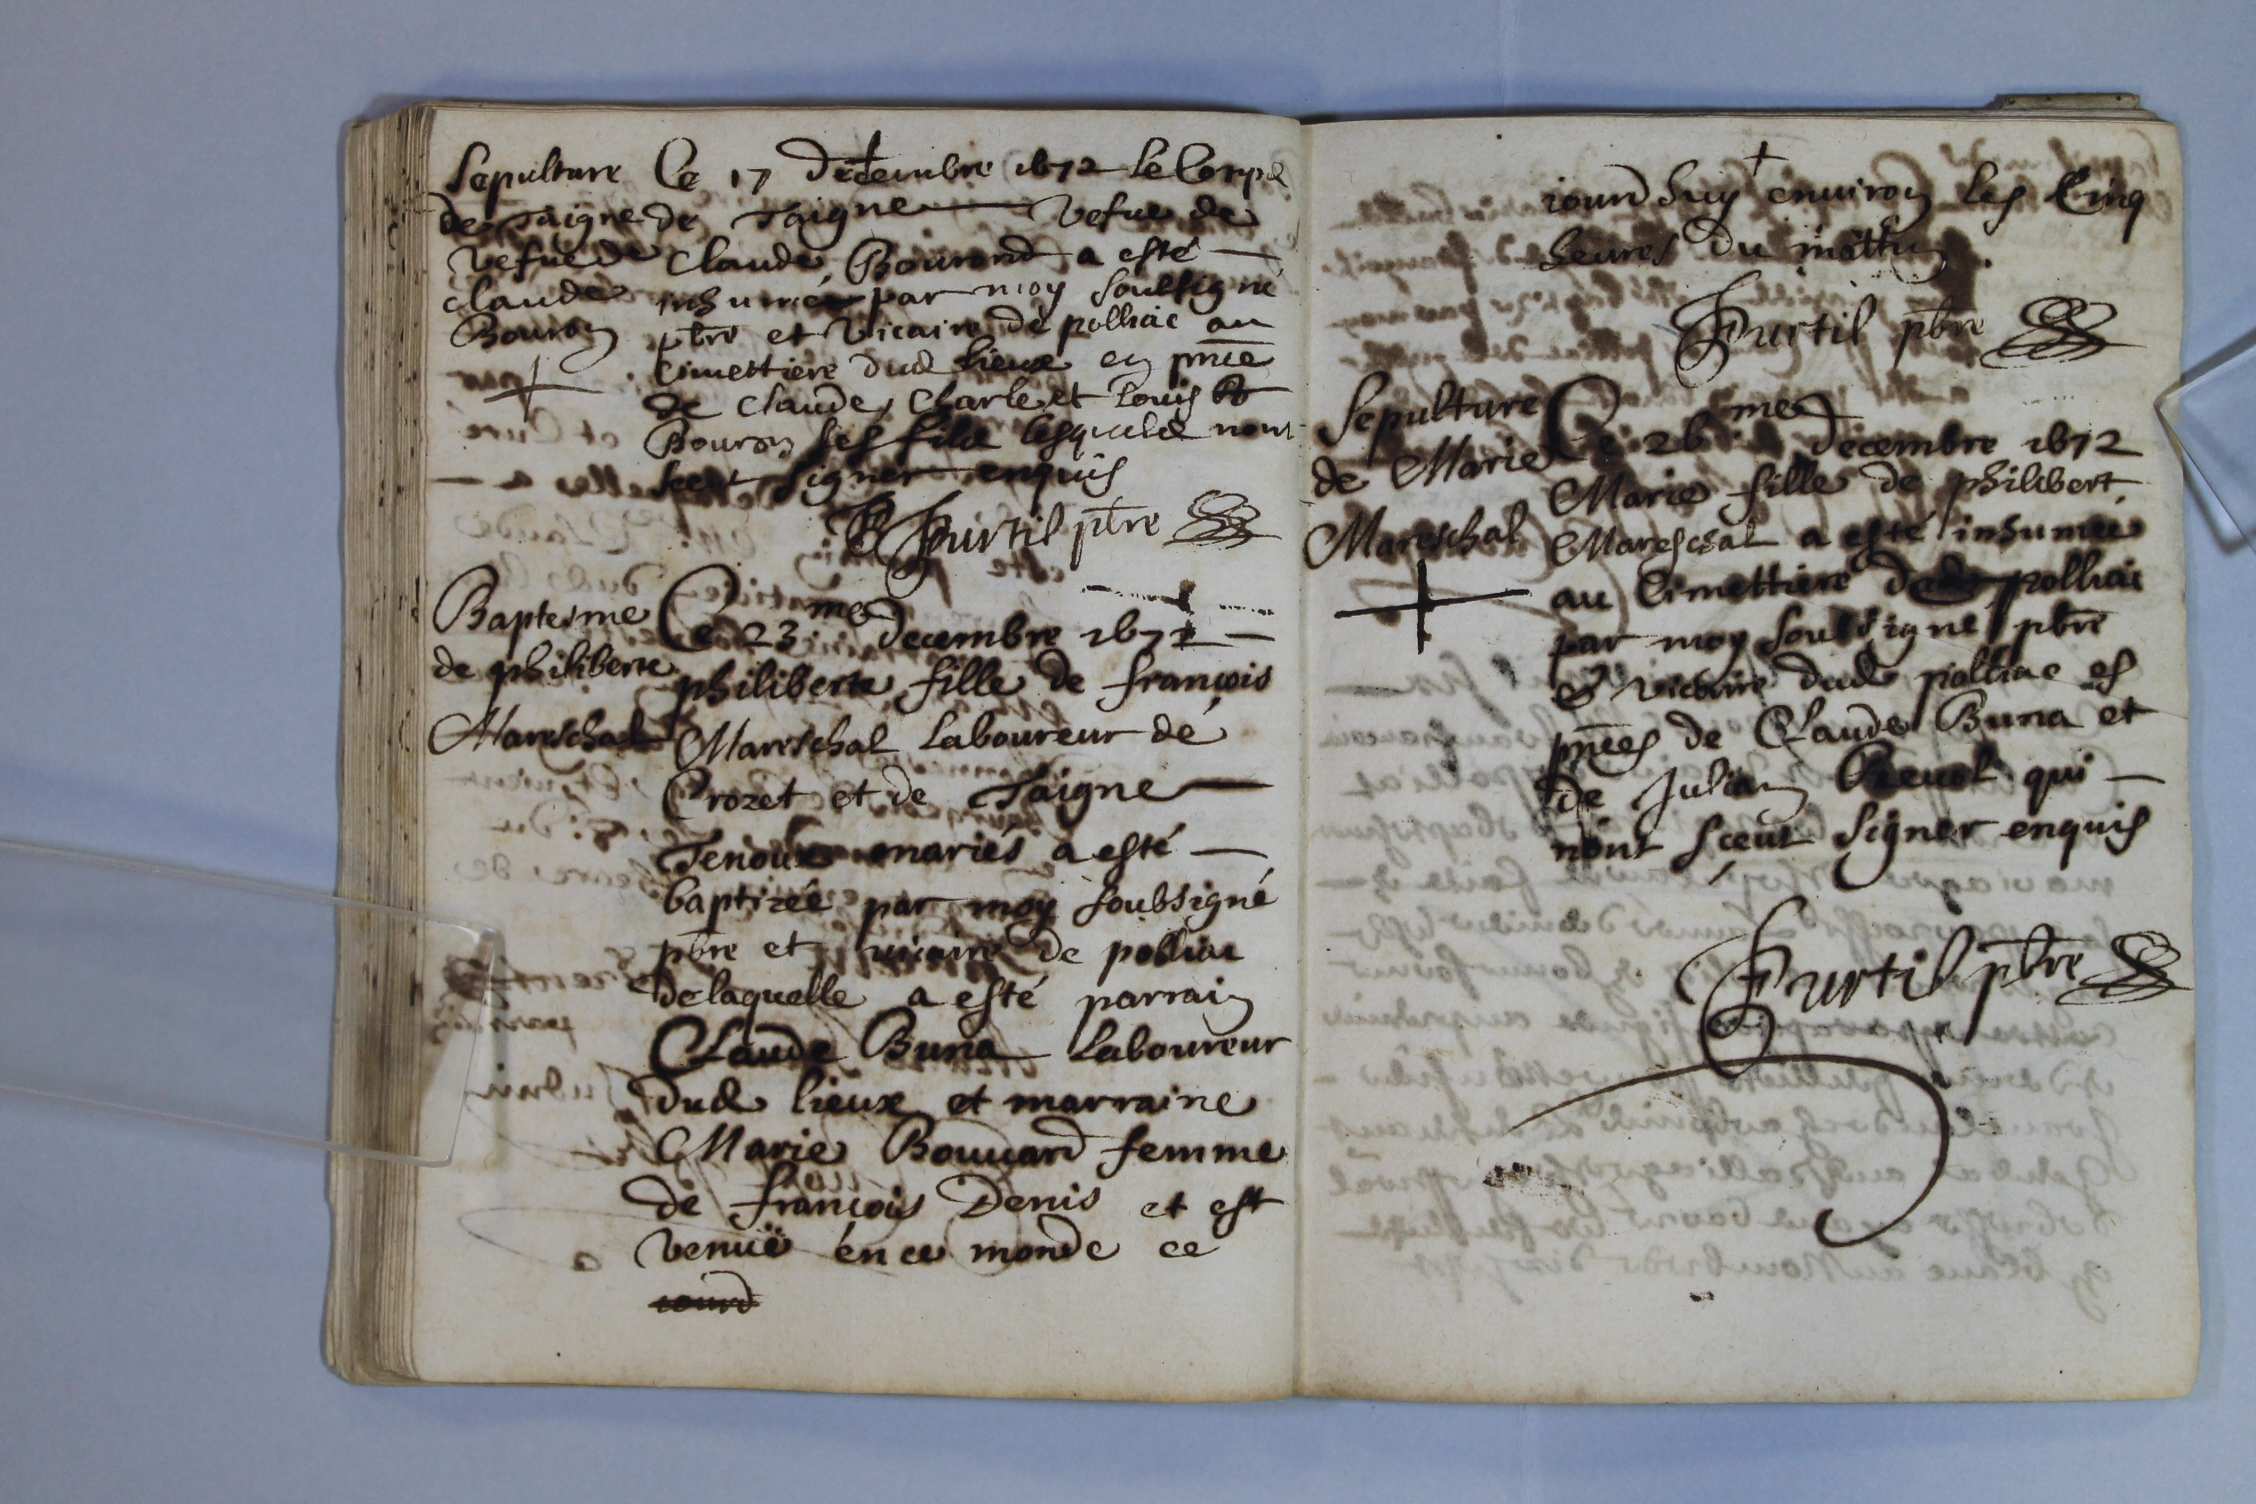 Sepulture
de Taigne
vefue de
claude
Bouron
Ce 17 decembre 1672 le Corps
de Taigne vefue de
Claude Bouron a esté
inhumée par moy soubsigné
pbre et vicaire de polliac au
cimettiere dud lieux en pnce
de claude, Charle et Louis
Bouron ses fils lesquels nont
sceut signer enquis
Furtil pbre
Baptesme
de philiberte
Mareschal
Ce 23me decembre 1672
philiberte fille de françois
Mareschal laboureur de
Crozet et de Taigne
Tenoux mariés a esté
baptizée par moy soubsigné
pbre et vicaire de polliac
de laquelle a esté parrain
Claude Buna laboureur
dud lieux et marraine
Marie Bouuard femme
de françois Denis et est
venuë en ce monde ce
iourd
iourdhuy environ les Cinq
heures du mattin
Furtil pbre
Sepulture
de Marie
Mareschal
Ce 26me decembre 1672
Marie fille de philibert
Mareschal a esté inhumée
au Cimettiere de polliac
par moy soubsigné pbre
& vicaire dud polliac es
pnces de Claude Buna et
de Julian qui
nont sceut signer enquis
Furtil pbre